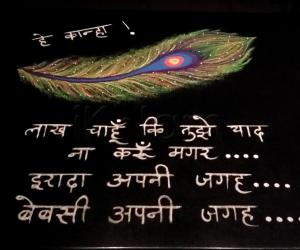 हे कान्हा !
लाख चाहूँ कि तुझे याद
ना करूँ मगर ....
इरादा अपनी जगह....
बेबसी अपनी जगह ....